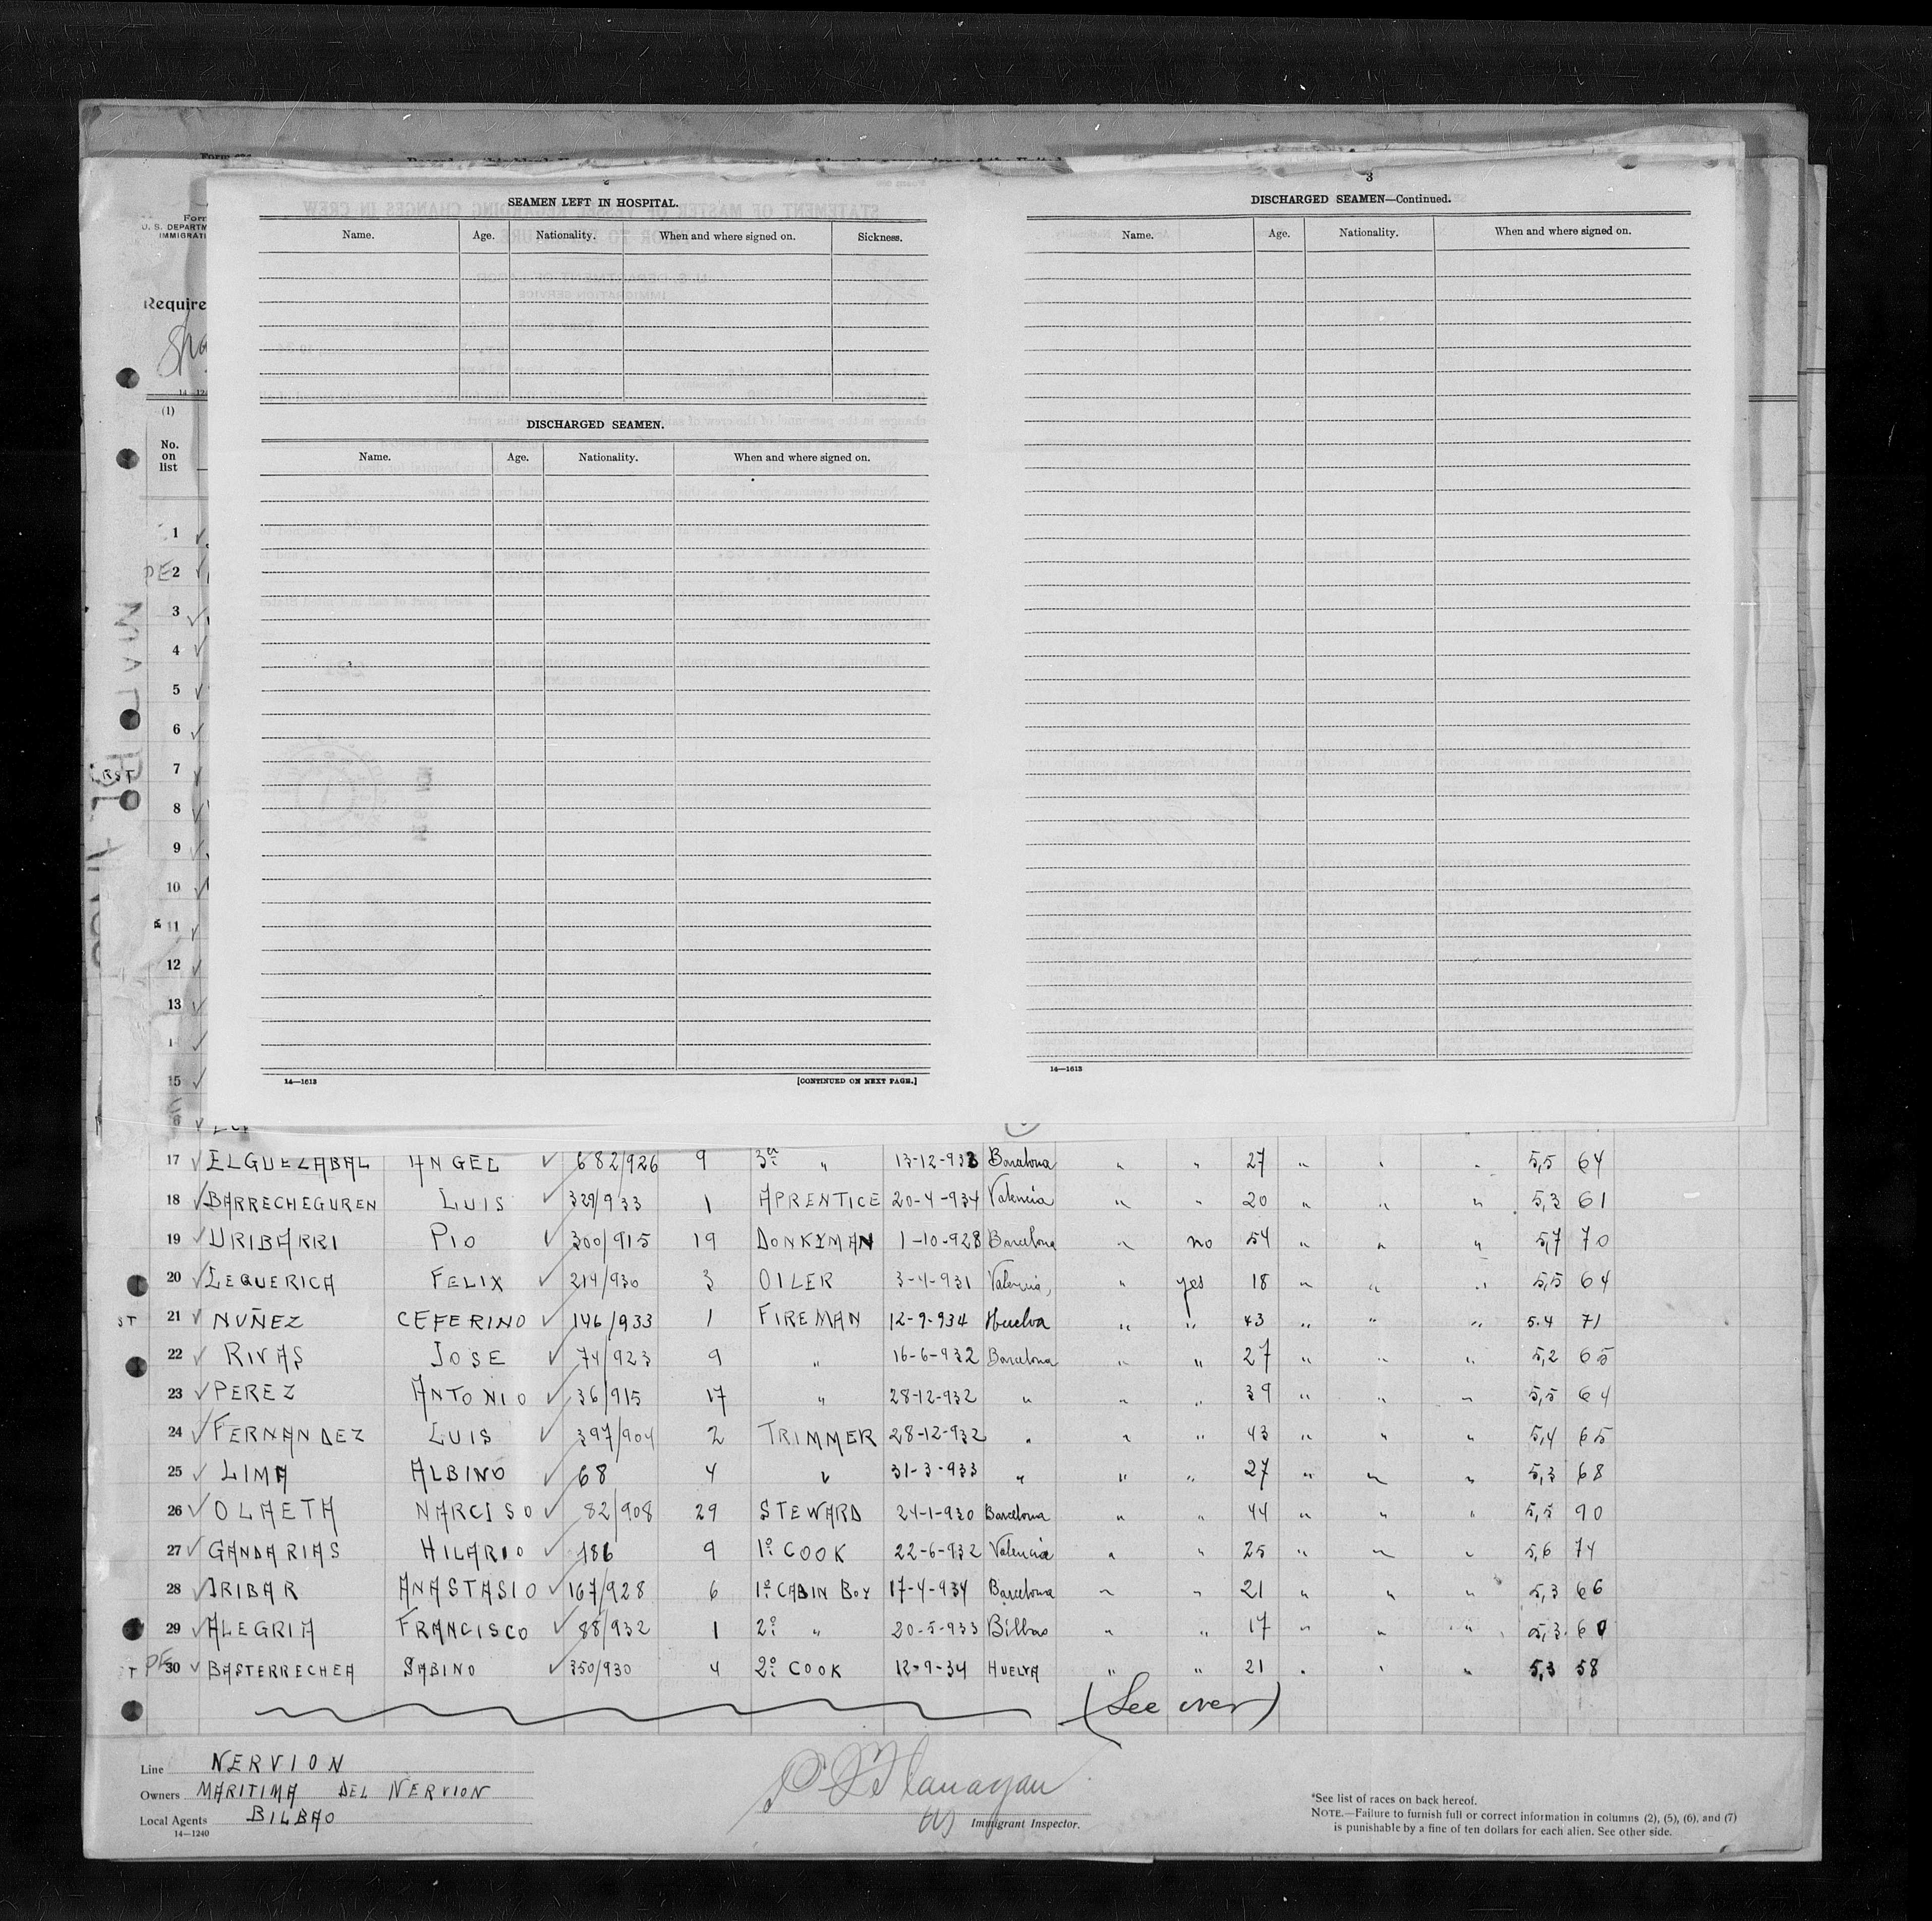 U. S. DEPARTM
IMMIGRATI
Require
(1)
No.
on
list
2
SEAMEN LEFT IN HOSPITAL.
Name. Age. Nationality. When and where signed on. Sickness.
DISCHARGED SEAMEN.
Name. Age. Nationality. When and where signed on.
14—1613 [CONTINUED ON NEXT PAGE.]
3
DISCHARGED SEAMEN—Continued.
Name. Age. Nationality. When and where signed on.
14—1613
1 ✓
PE 2 ✓
3 ✓
4 ✓
5 ✓
6 ✓
7 ✓
8 ✓
9 ✓
10 ✓
11 ✓
12 ✓
13 ✓
15 ✓
17 ✓ ELGUEZABAL ANGEL ✓ 682/926 9 3ª " 13-12-933 Barcelona " " 27 " " " 5,5 64
18 ✓ BARRECHEGUREN LUIS ✓ 329/933 1 APRENTICE 20-4-934 Valencia " " 20 " " " 5,3 61
19 ✓ URIBARRI PIO ✓ 300/915 19 DONKYMAN 1-10-928 Barcelona " no 54 " " " 5,7 70
20 ✓ LEQUERICA FELIX ✓ 214/930 3 OILER 3-4-931 Valencia, " yes 18 " " " 5,5 64
ST 21 ✓ NUÑEZ CEFERINO ✓ 146/933 1 FIREMAN 12-9-934 Huelva " " 43 " " " 5.4 71
22 ✓ RIVAS JOSE ✓ 74/923 9 " 16-6-932 Barcelona " " 27 " " " 5,2 65
23 ✓ PEREZ ANTONIO ✓ 36/915 17 " 28-12-932 " " " 39 " " " 5,5 64
24 ✓ FERNANDEZ LUIS ✓ 397/904 2 TRIMMER 28-12-932 " " " 43 " " " 5,4 65
25 ✓ LIMA ALBINO ✓ 68 4 " 31-3-933 " " " 27 " " " 5,3 68
26 ✓ OLAETA NARCISO ✓ 82/908 29 STEWARD 24-1-930 Barcelona " " 44 " " " 5,5 90
27 ✓ GANDARIAS HILARIO ✓ 186 9 1º COOK 22-6-932 Valencia " " 25 " " " 5,6 74
28 ✓ IRIBAR ANASTASIO ✓ 167/928 6 1º CABIN BOY 17-4-934 Barcelona " " 21 " " " 5,3 66
29 ✓ ALEGRIA FRANCISCO ✓ 88/932 1 2º " 20-5-933 Bilbao " " 17 " " " 5,3 60
T PE 30 ✓ BASTERRECHEA SABINO ✓ 350/930 4 2º COOK 12-9-34 HUELVA " " 21 " " " 5,3 58
(See over)
Line NERVION
Owners MARITIMA DEL NERVION
Local Agents BILBAO
14—1240
Flanagan
Immigrant Inspector.
*See list of races on back hereof.
NOTE.—Failure to furnish full or correct information in columns (2), (5), (6), and (7)
is punishable by a fine of ten dollars for each alien. See other side.